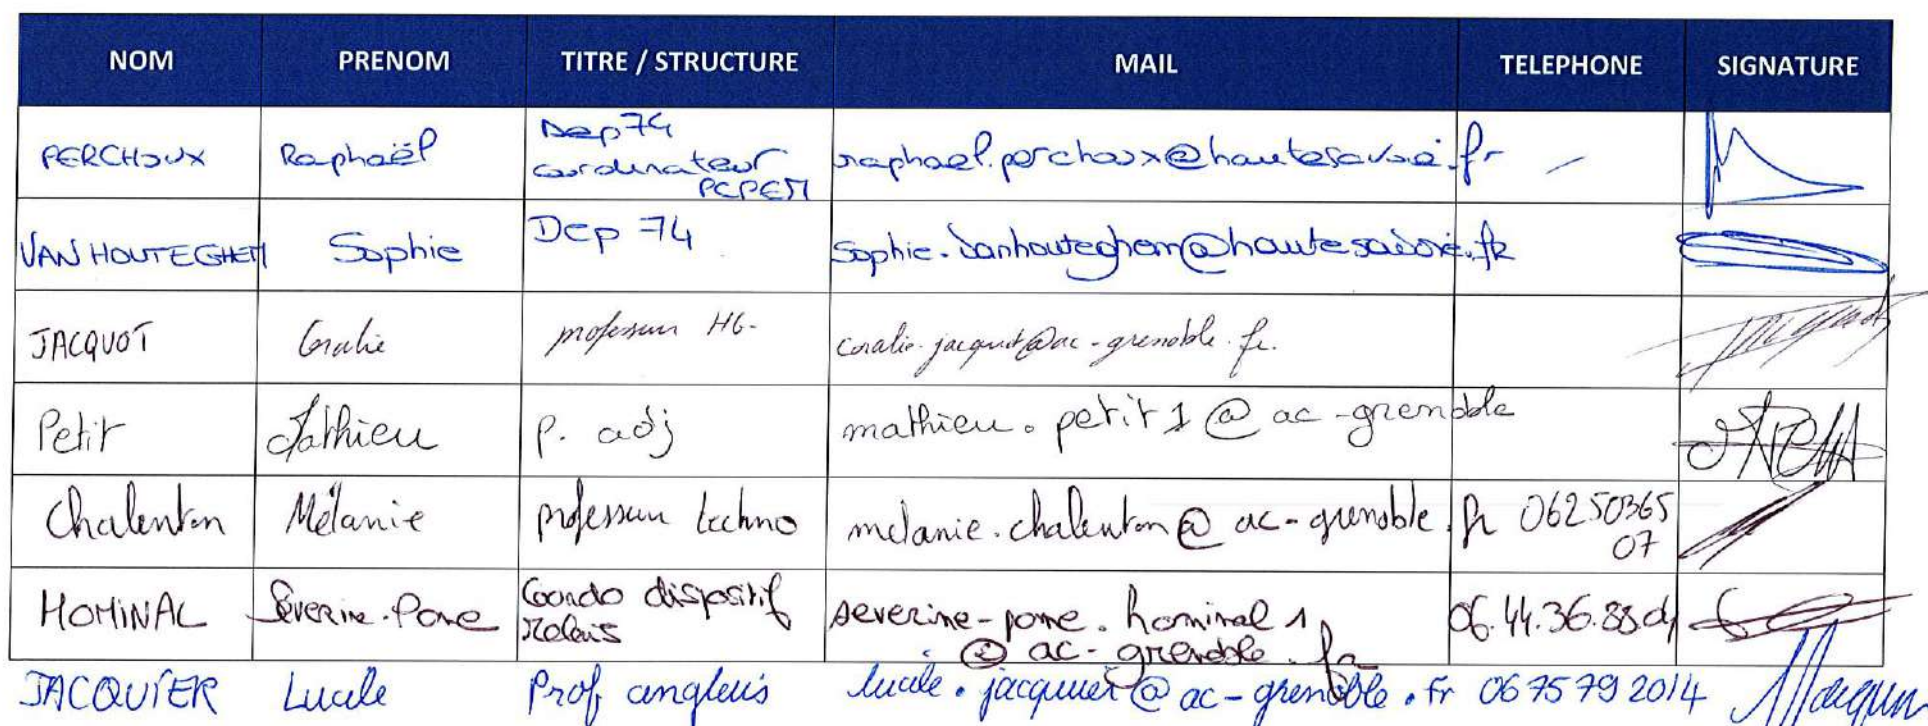 NOM PRENOM TITRE / STRUCTURE MAIL TELEPHONE SIGNATURE
PERCHOUX Raphaël Dep 74 raphael.perchoux@hautesavoie.fr -
coordinateur
PCPEM
VAN HOUTEGHEM Sophie Dep 74 Sophie.vanhouteghem@hautesavoie.fr
JACQUOT Coralie professeur HG- coralie.jacquot@ac-grenoble.fr.
Petit Mathieu p. adj mathieu.petit1@ac-grenoble
Chalenton Mélanie professeur techno melanie.chalenton@ac-grenoble.fr 06250365
07
HOMINAL Séverine- Coordo dispositif severine- .hominal1 06.44.36.88.
relais @ac-grenoble.fr
JACQUIER Lucile Prof anglais lucile.jacquier@ac-grenoble.fr 06 75 79 2014